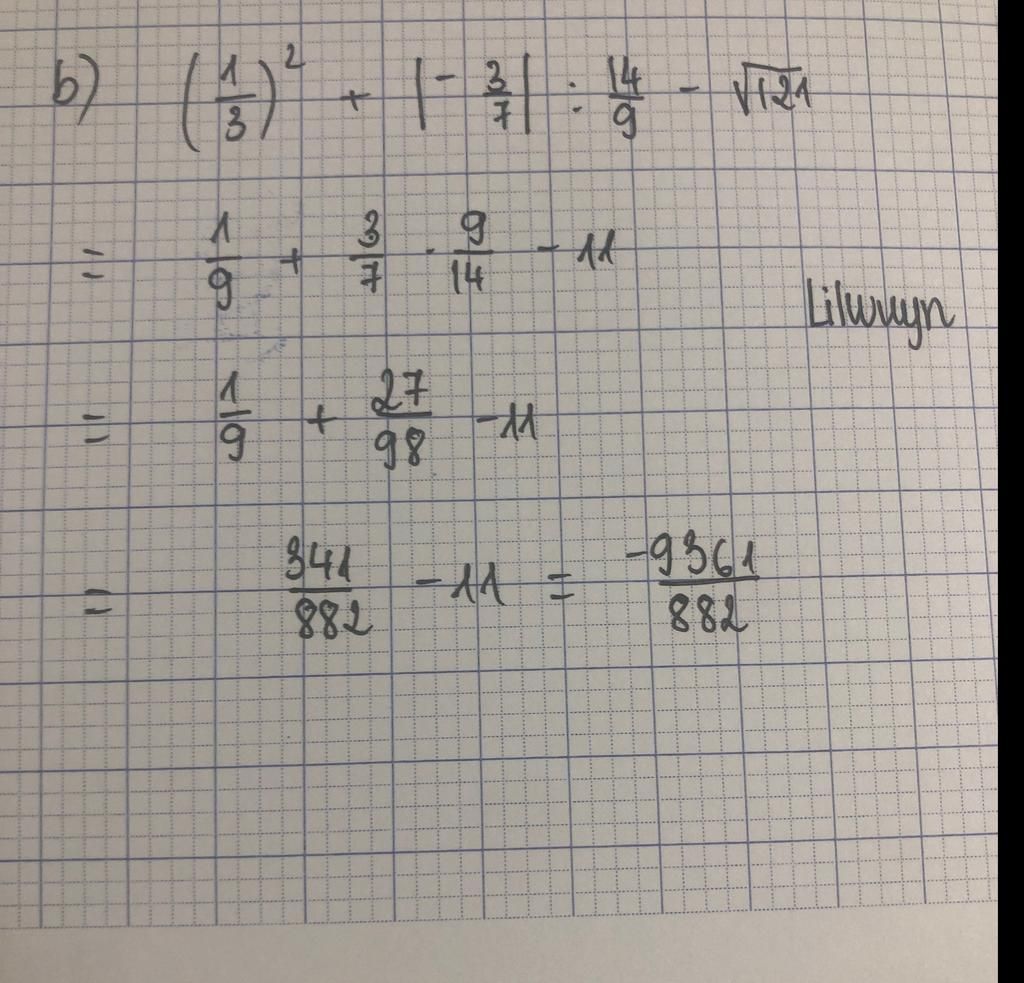 b) (1/3)² + |- 3/7| : 14/9 - √121
= 1/9 + 3/7 · 9/14 - 11
Lilwuyn
= 1/9 + 27/98 - 11
= 341/882 - 11 = -9361/882